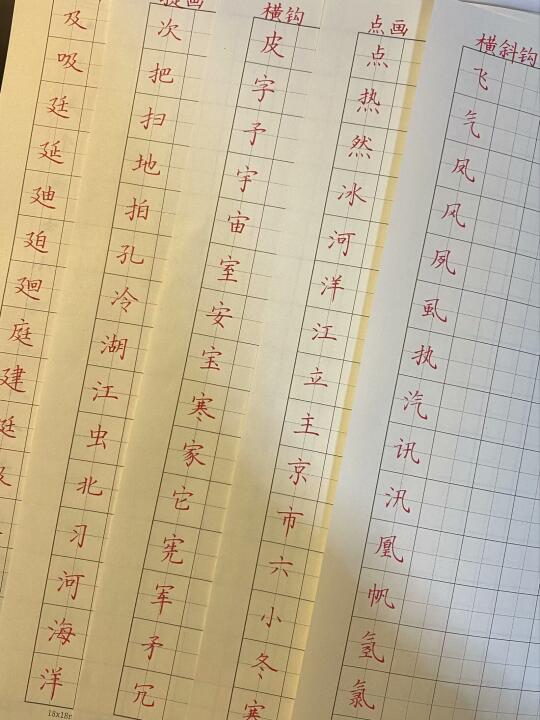 及吸廷延廸廹廻庭建
提画
次把扫地拍孔冷湖江虫北习河海洋
18x18
横钩
皮字予宇宙室安宝寒家它宪军矛冗
点画
点热然冰河洋江立主京市六小冬寒
横斜钩
飞气凤风夙虱执汽讯汛凰帆氢氯